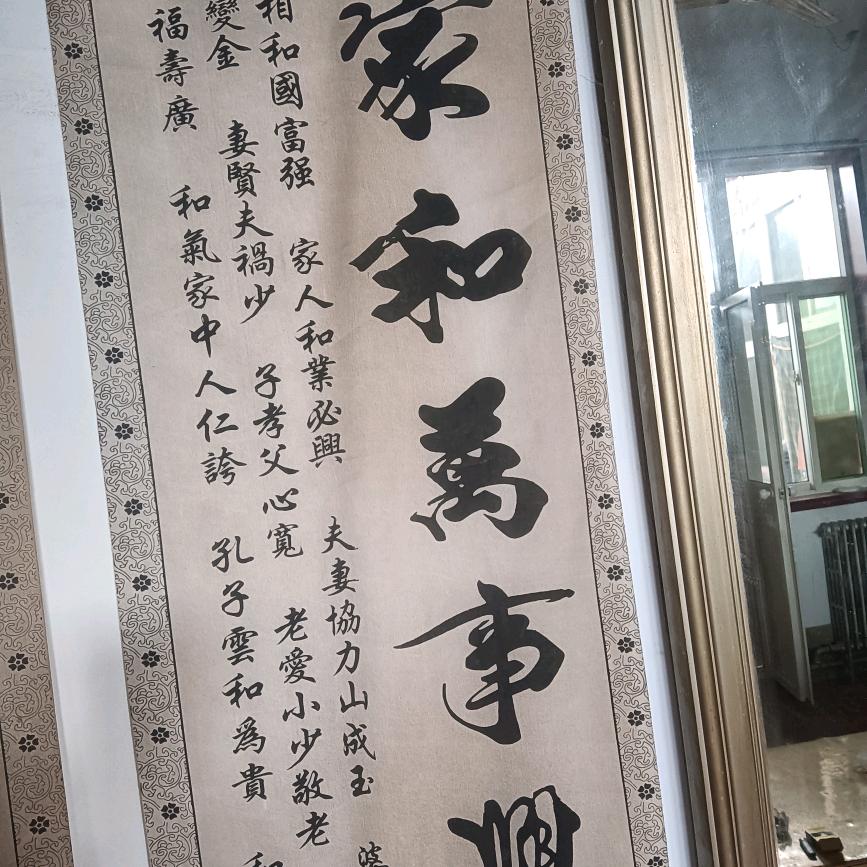 家和萬事興
相和國富强 家人和業必興 夫妻協力山成玉 婆
變金 妻賢夫禍少 子孝父心寬 老愛小少敬老
福壽廣 和氣家中人仁誇 孔子雲和爲貴 和